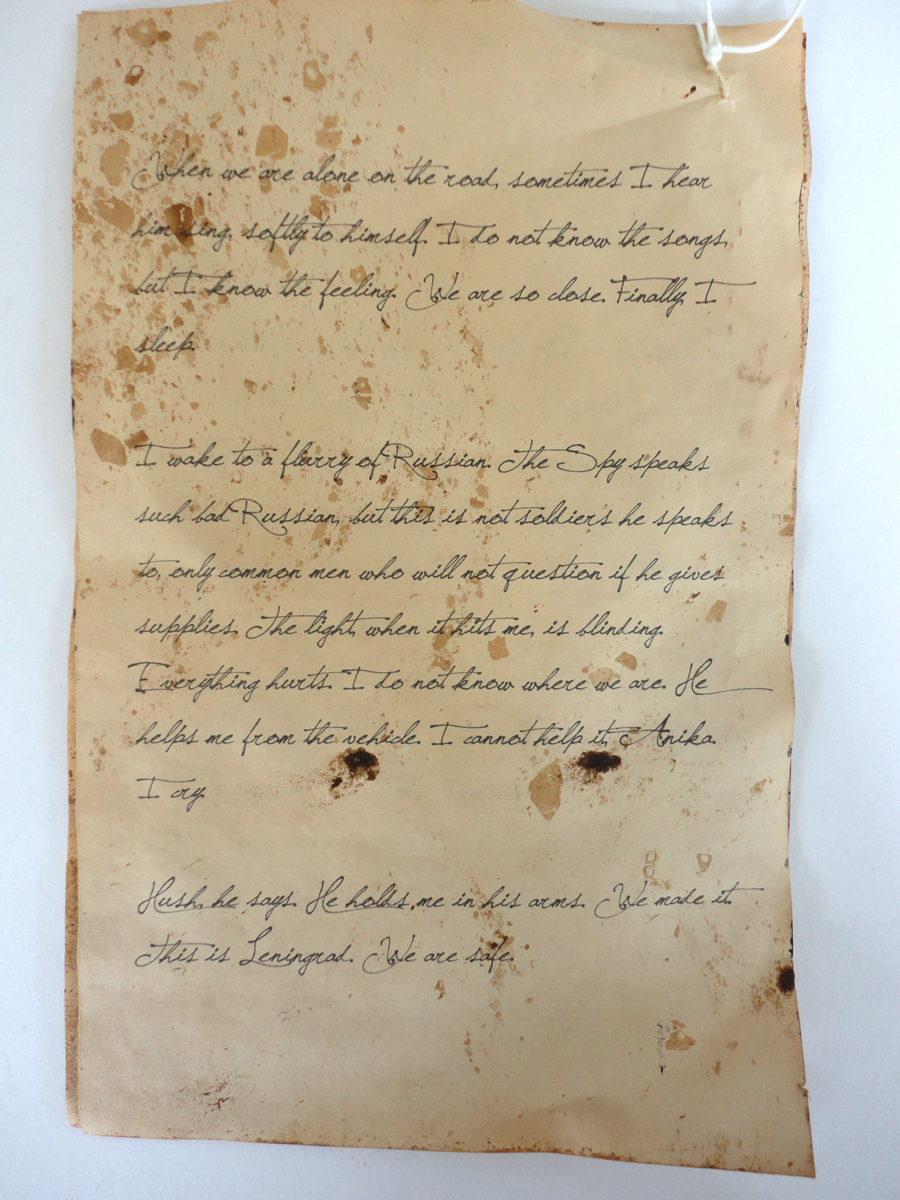 When we are alone on the road, sometimes I hear
him sing, softly to himself. I do not know the songs,
but I know the feeling. We are so close. Finally, I
sleep.
I wake to a flurry of Russian. The Spy speaks
such bad Russian, but this is not soldiers he speaks
to, only common men who will not question if he gives
supplies. The light, when it hits me, is blinding.
Everything hurts. I do not know where we are. He
helps me from the vehicle. I cannot help it, Anika.
I cry.
Hush, he says. He holds me in his arms. We made it.
This is Leningrad. We are safe.